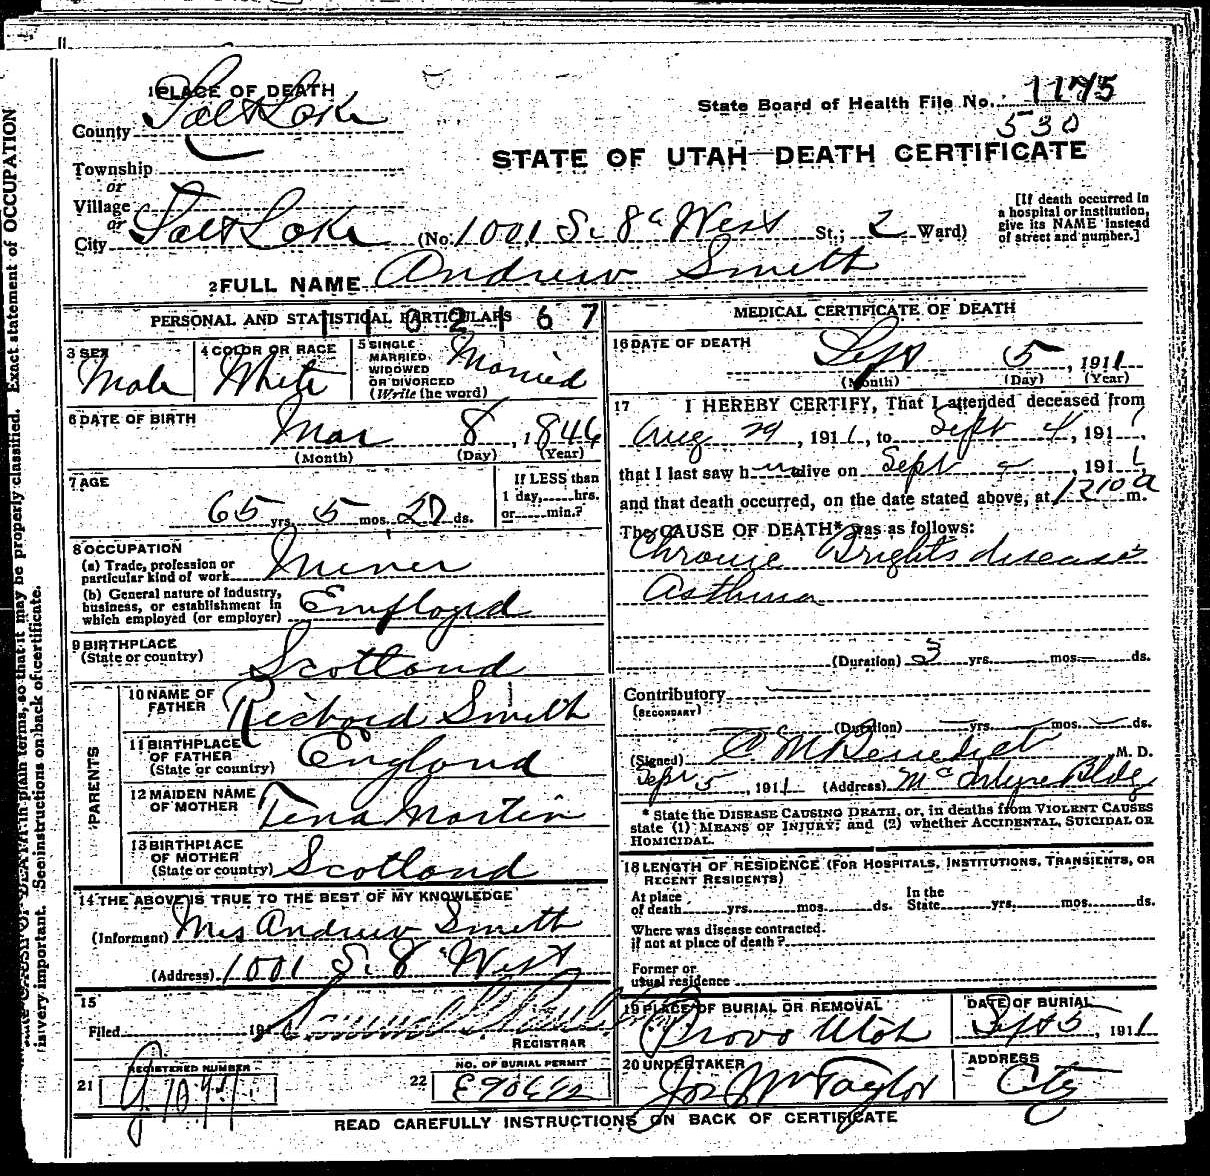 1 PLACE OF DEATH
County Salt Lake
State Board of Health File No. 1175
530
Township
or
Village
or
City Salt Lake (No. 1001 S. 8th West St.; 2 Ward)
STATE OF UTAH—DEATH CERTIFICATE
[If death occurred in
a hospital or institution,
give its NAME instead
of street and number.]
2 FULL NAME Andrew Smith
PERSONAL AND STATISTICAL PARTICULARS
1102167
3 SEX
Male
4 COLOR OR RACE
White
5 SINGLE
MARRIED
WIDOWED
OR DIVORCED
(Write the word)
Married
6 DATE OF BIRTH
Mar 8, 1846
(Month) (Day) (Year)
7 AGE
65 yrs. 5 mos. 27 ds.
If LESS than
1 day,......hrs.
or......min.?
8 OCCUPATION
(a) Trade, profession or
particular kind of work Miner
(b) General nature of industry,
business, or establishment in
which employed (or employer) Employed
9 BIRTHPLACE
(State or country)
Scotland
PARENTS
10 NAME OF
FATHER
Richard Smith
11 BIRTHPLACE
OF FATHER
(State or country)
England
12 MAIDEN NAME
OF MOTHER
Tena Martin
13 BIRTHPLACE
OF MOTHER
(State or country)
Scotland
14 THE ABOVE IS TRUE TO THE BEST OF MY KNOWLEDGE
(Informant) Mrs Andrew Smith
(Address) 1001 S. 8 West
15
Filed 191
REGISTRAR
REGISTERED NUMBER
21
NO. OF BURIAL PERMIT
22
MEDICAL CERTIFICATE OF DEATH
16 DATE OF DEATH
Sept 5, 1911
(Month) (Day) (Year)
17 I HEREBY CERTIFY, That I attended deceased from
Aug 29, 1911, to Sept 4, 1911,
that I last saw him alive on Sept, 1911,
and that death occurred, on the date stated above, at 1210 a m.
The CAUSE OF DEATH* was as follows:
Chronic Brights disease
Asthma
(Duration) 3 yrs. mos. ds.
Contributory
(SECONDARY)
(Duration) yrs. mos. ds.
(Signed) C M Benedict M. D.
Sept 5, 1911 (Address) McIntyre Bldg
* State the DISEASE CAUSING DEATH, or, in deaths from VIOLENT CAUSES
state (1) MEANS OF INJURY; and (2) whether ACCIDENTAL, SUICIDAL OR
HOMICIDAL.
18 LENGTH OF RESIDENCE (FOR HOSPITALS, INSTITUTIONS, TRANSIENTS, OR
RECENT RESIDENTS)
At place
of death yrs. mos. ds.
In the
State yrs. mos. ds.
Where was disease contracted.
if not at place of death?
Former or
usual residence
19 PLACE OF BURIAL OR REMOVAL
Provo Utah
DATE OF BURIAL
Sept 5, 1911
20 UNDERTAKER
Jos Wm Taylor
ADDRESS
City
READ CAREFULLY INSTRUCTIONS ON BACK OF CERTIFICATE
state CAUSE OF DEATH in plain terms, so that it may be properly classified. Exact statement of OCCUPATION
is very important. See instructions on back of certificate.